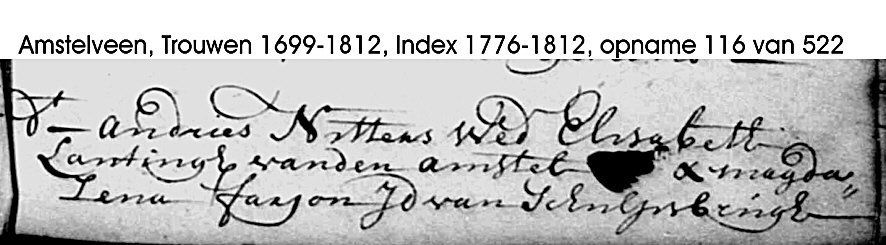 Amstelveen, Trouwen 1699-1812, Index 1776-1812, opname 116 van 522
Dt — andries Nitters Wed Elisabett
Lantingh vanden amstel & magda"
Lena faason Jd van Schulenbrugh